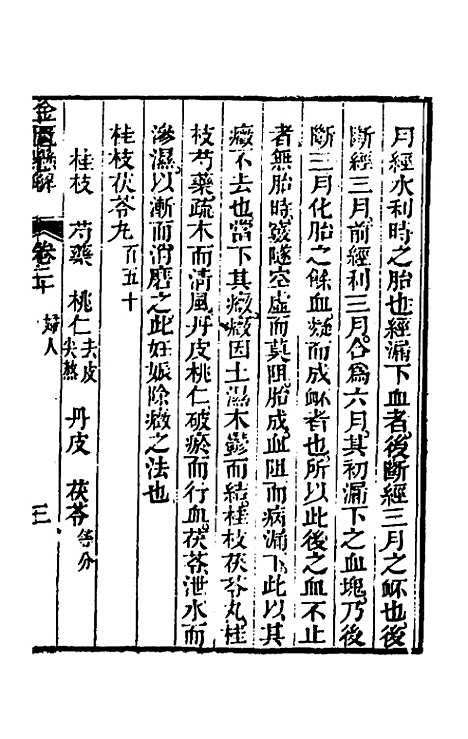 月經水利時之胎也經漏下血者後斷經三月之衃也後
斷經三月前經利三月合爲六月其初漏下之血塊乃後
斷三月化胎之餘血凝而成衃者也所以此後之血不止
者無胎時經隧空虛而莫阻胎成血阻而病漏下此以其
癥不去也當下其癥癥因土濕木鬱而結桂枝茯苓丸桂
枝芍藥疏木而清風丹皮桃仁破瘀而行血茯苓泄水而
滲濕以漸而消磨之此妊娠除癥之法也
桂枝茯苓丸 百五十
桂枝 芍藥 桃仁去皮尖熬 丹皮 茯苓等分
金匱懸解 卷二十 婦人 三